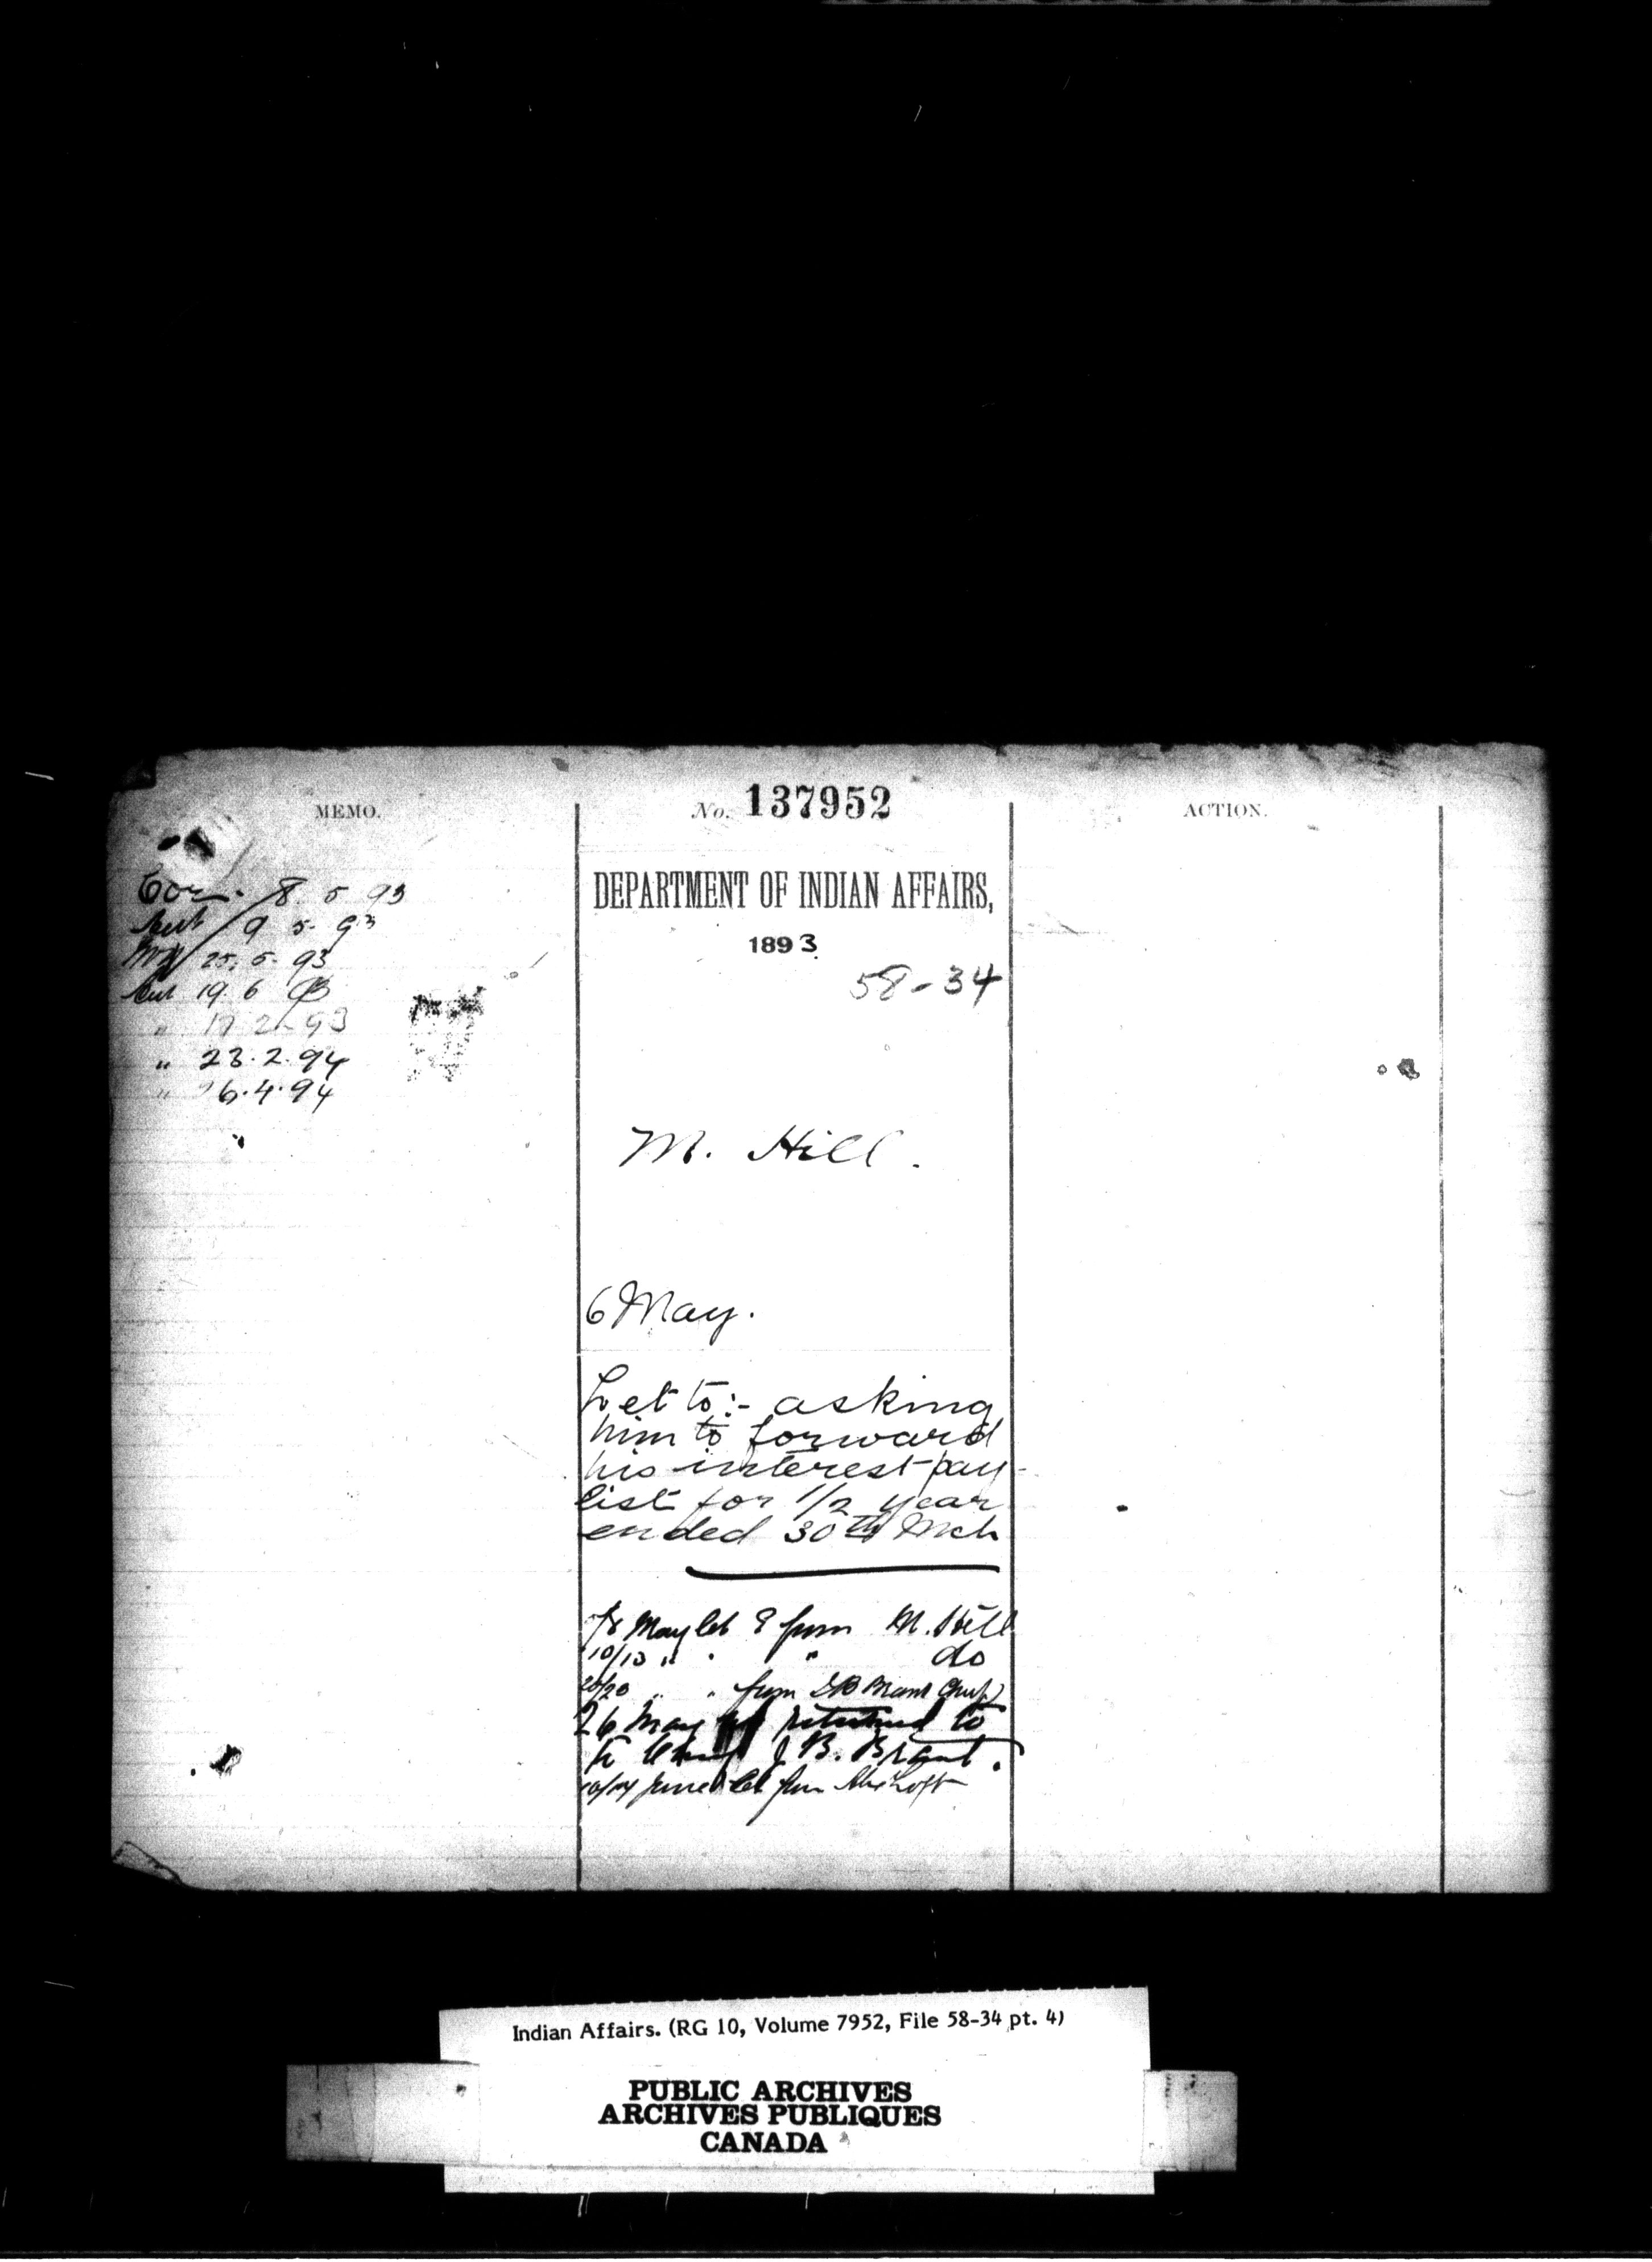 MEMO.
Cor. 8. 5 93
9 5- 93
25. 5. 93
19. 6 93
" 93
" 23. 2. 94
" 6. 4. 94
No. 137952
DEPARTMENT OF INDIAN AFFAIRS,
1893
58-34
M. Hill.
6 May.
Let to:- asking
him to forward
his interest pay-
list for 1/2 year
ended 30th Mch
/8 May let from M. Hill
10/10 " " do
20/20 " " from Brant Chief
26 May returned to
to Chief J. B. Brant.
June let from Loft
ACTION.
Indian Affairs. (RG 10, Volume 7952, File 58-34 pt. 4)
PUBLIC ARCHIVES
ARCHIVES PUBLIQUES
CANADA